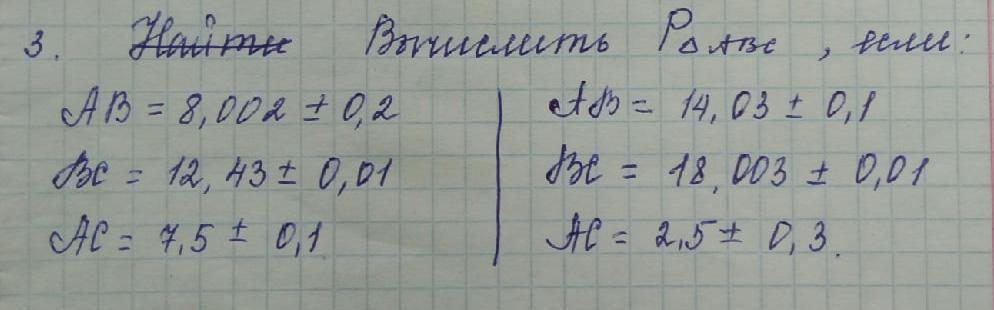 3. Найти Вычислить P△ABC, если:
AB = 8,002 ± 0,2
BC = 12,43 ± 0,01
AC = 7,5 ± 0,1
AB = 14,03 ± 0,1
BC = 18,003 ± 0,01
AC = 2,5 ± 0,3.